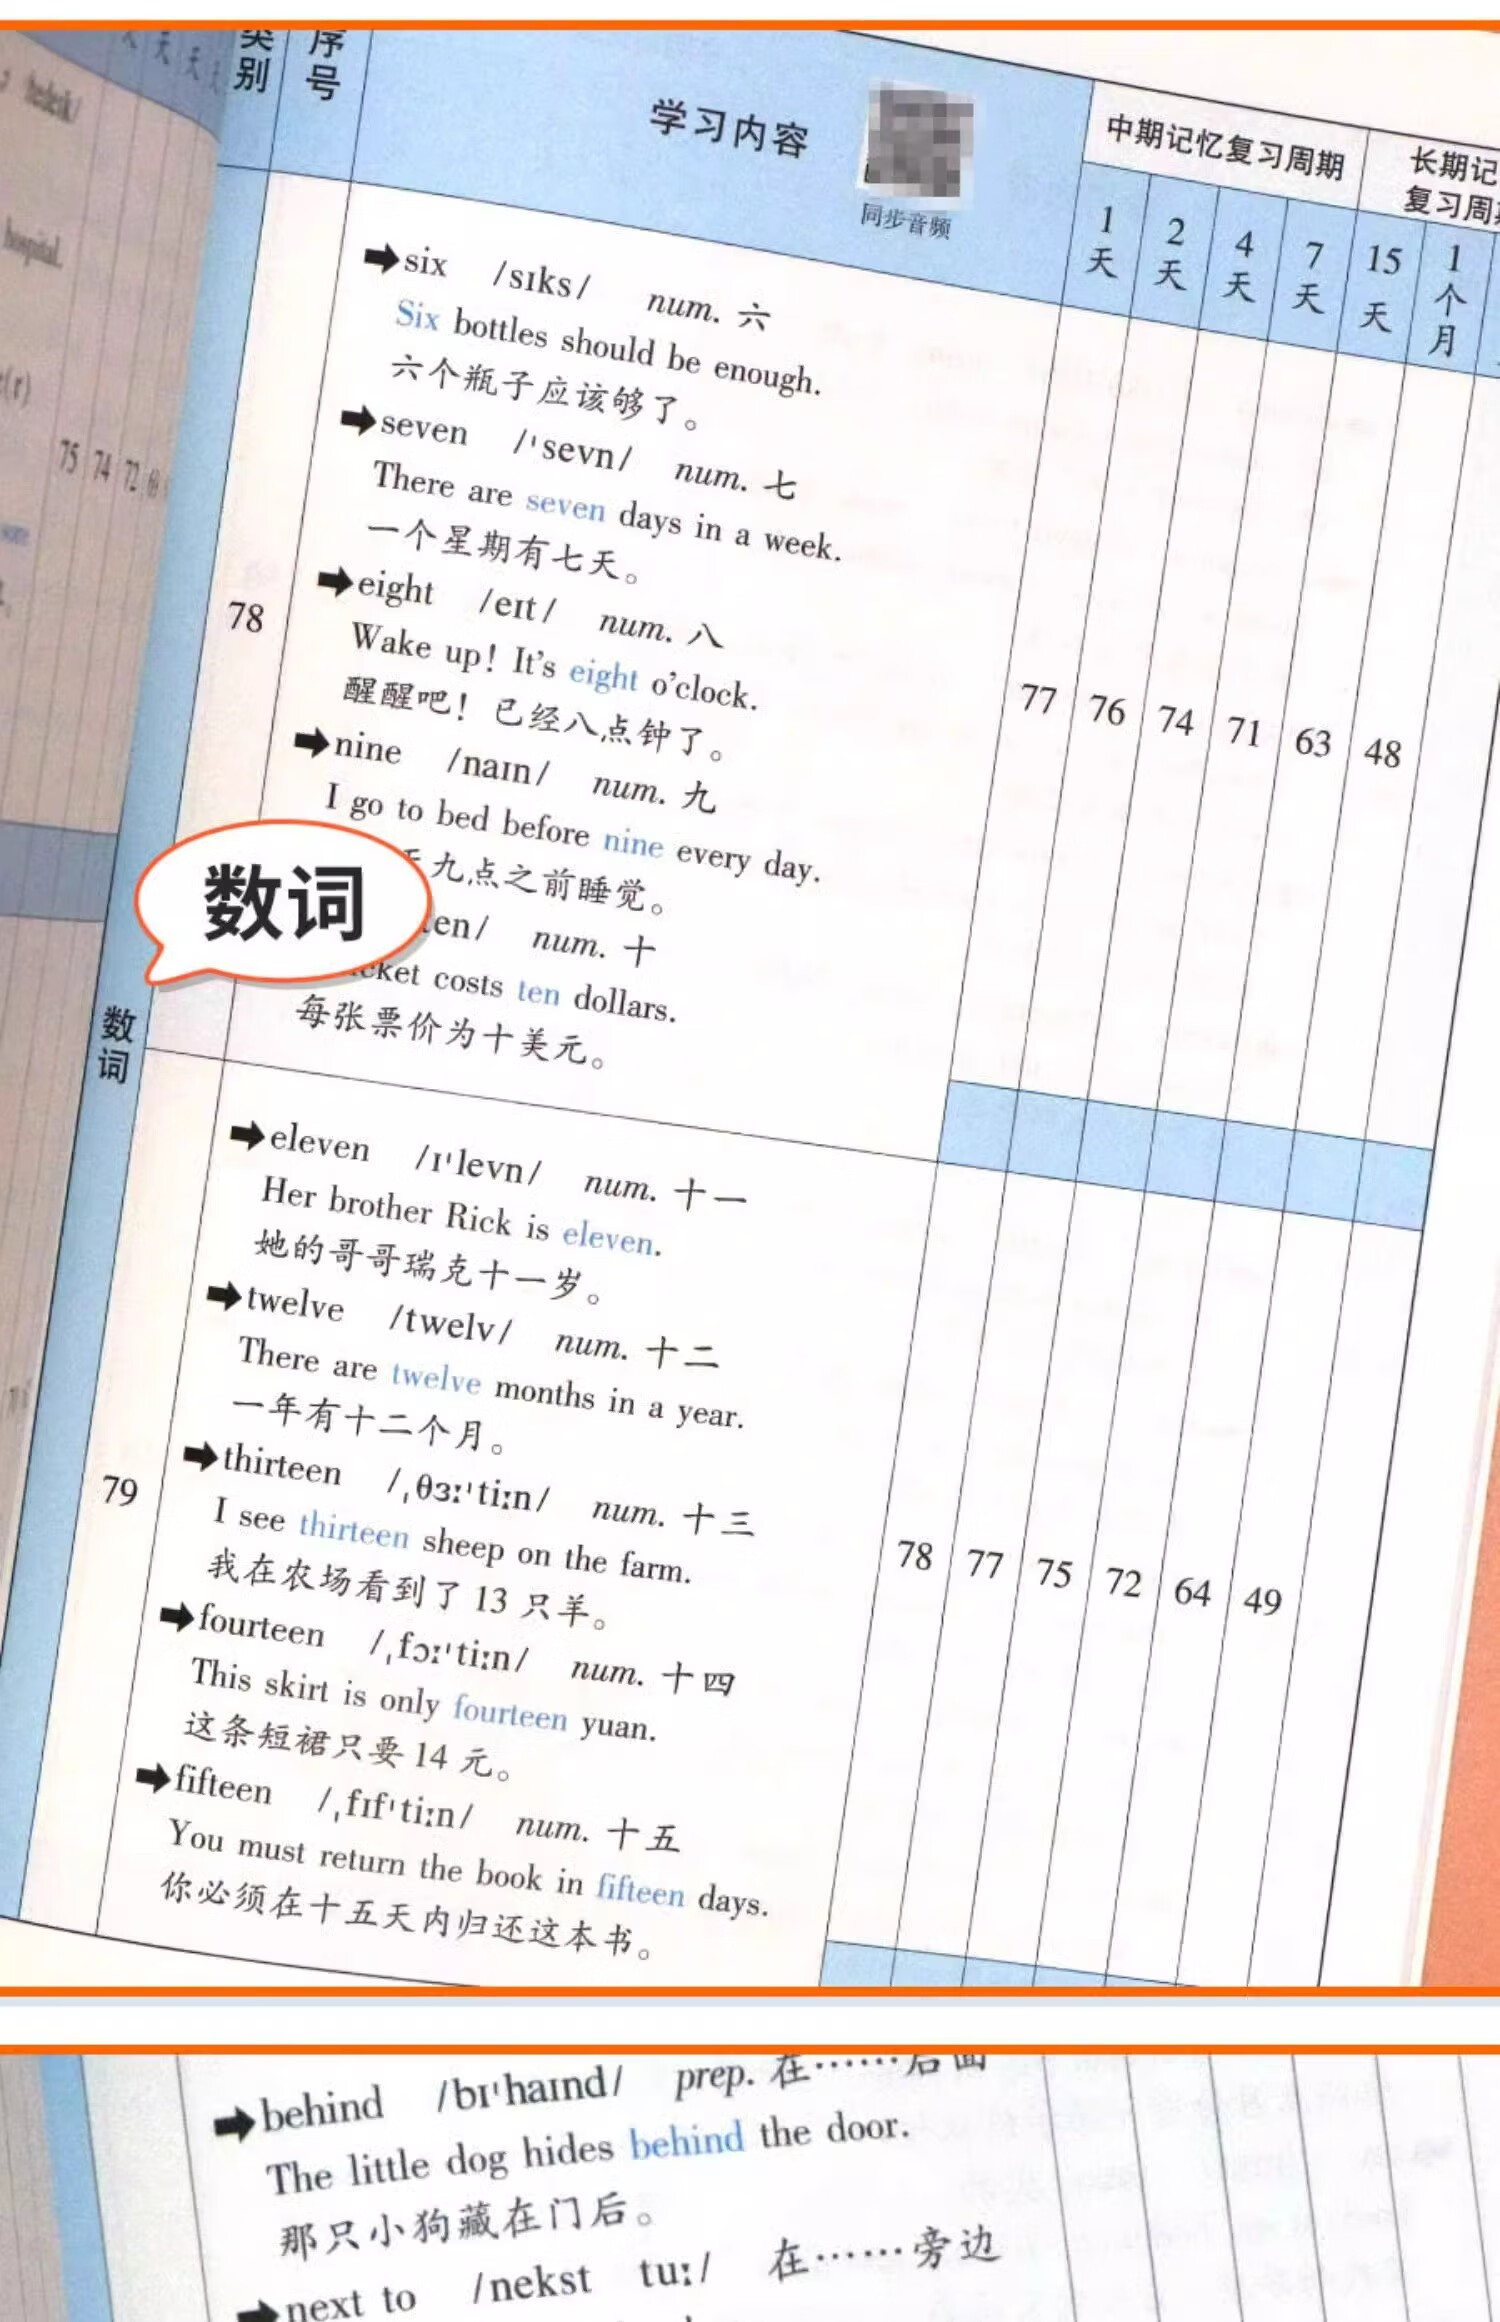 类别
序号
学习内容
同步音频
中期记忆复习周期
长期记
复习周
1天
2天
4天
7天
15天
1个月
➡six /sɪks/ num. 六
Six bottles should be enough.
六个瓶子应该够了。
➡seven /ˈsevn/ num. 七
There are seven days in a week.
一个星期有七天。
➡eight /eɪt/ num. 八
Wake up! It's eight o'clock.
醒醒吧！已经八点钟了。
➡nine /naɪn/ num. 九
I go to bed before nine every day.
九点之前睡觉。
ten/ num. 十
costs ten dollars.
每张票价为十美元。
78
77 76 74 71 63 48
数词
数词
➡eleven /ɪˈlevn/ num. 十一
Her brother Rick is eleven.
她的哥哥瑞克十一岁。
➡twelve /twelv/ num. 十二
There are twelve months in a year.
一年有十二个月。
➡thirteen /ˌθɜːˈtiːn/ num. 十三
I see thirteen sheep on the farm.
我在农场看到了 13 只羊。
➡fourteen /ˌfɔːˈtiːn/ num. 十四
This skirt is only fourteen yuan.
这条短裙只要 14 元。
➡fifteen /ˌfɪfˈtiːn/ num. 十五
You must return the book in fifteen days.
你必须在十五天内归还这本书。
79
78 77 75 72 64 49
75 74 72
➡behind /bɪˈhaɪnd/ prep. 在……后面
The little dog hides behind the door.
那只小狗藏在门后。
➡next to /nekst tuː/ 在……旁边